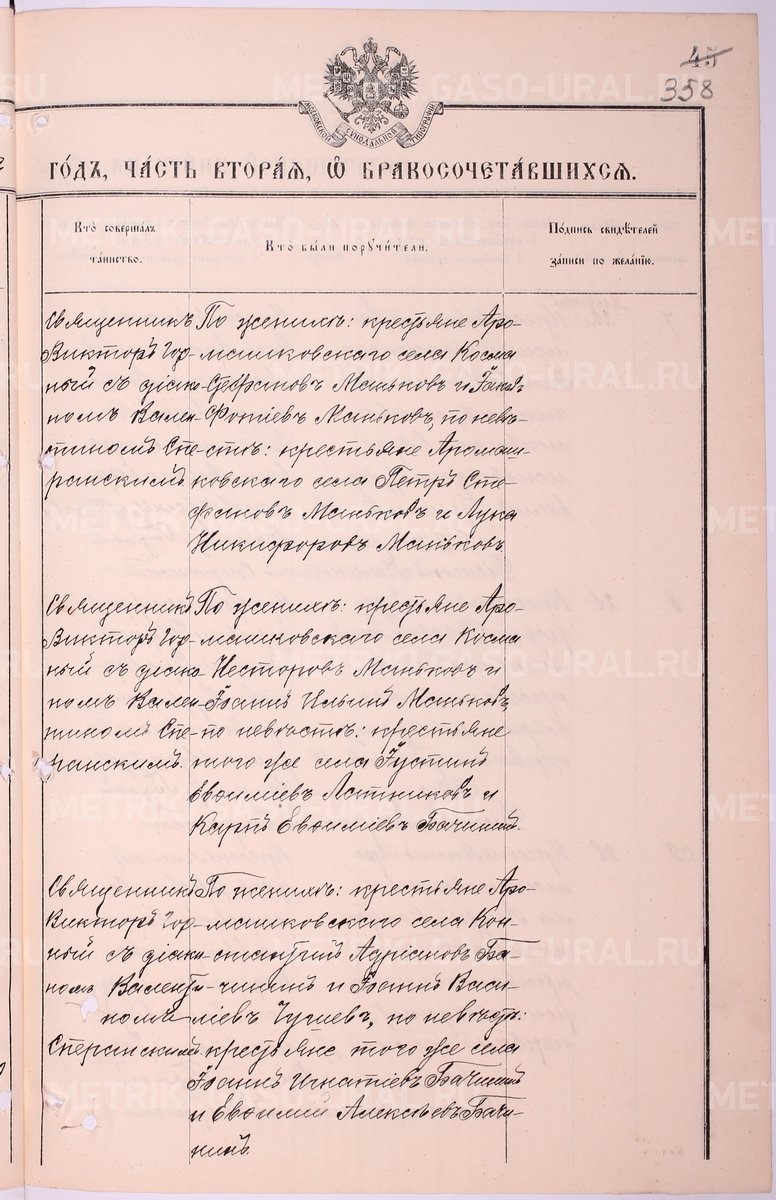 45
358
МОСКОВСКОЙ СѴНОДАЛЬНОЙ ТИПОГРАФІИ
ГО́ДЪ, ЧА́СТЬ ВТОРА́Я, Ѽ БРАКОСОЧЕТА́ВШИХСЯ.
Кто̀ соверша́лъ
та́инство.
Кто̀ бы́ли порꙋчи́тели.
По́дпись свидѣ́телей
за́писи по жела́нію.
Священникъ
Викторъ Гор-
ный съ діако-
номъ Вален-
тиномъ Спе-
ранскимъ
По женихѣ: крестьяне Аро-
машковскаго села Косма
Стефановъ Маньковъ и
Фотіевъ Маньковъ, по невѣ-
стѣ: крестьяне Аромаш-
ковскаго села Петръ Сте-
фановъ Маньковъ и Лука
Никифоровъ Маньковъ
Священникъ
Викторъ Гор-
ный съ діако-
номъ Вален-
тиномъ Спе-
ранскимъ.
По женихѣ: крестьяне Аро-
машковскаго села Косма
Несторовъ Маньковъ и
Іоаннъ Ильинъ Маньковъ,
по невѣстѣ: крестьяне
того же села Іустинъ
Евѳиміевъ Латниковъ и
Карпъ Евѳиміевъ Бачининъ.
Священникъ
Викторъ Гор-
ный съ діако-
номъ Валенти-
номъ
Сперанскимъ
По женихѣ: крестьяне Аро-
машковскаго села Кон-
стантинъ Адріановъ Ба-
чининъ и Іоаннъ Васи-
ліевъ Чугаевъ, по невѣстѣ:
крестьяне того же села
Іоаннъ Игнатіевъ Бачининъ
и Евѳимій Алексѣевъ Бачи-
нинъ.
METRIKI.GASO-URAL.RU